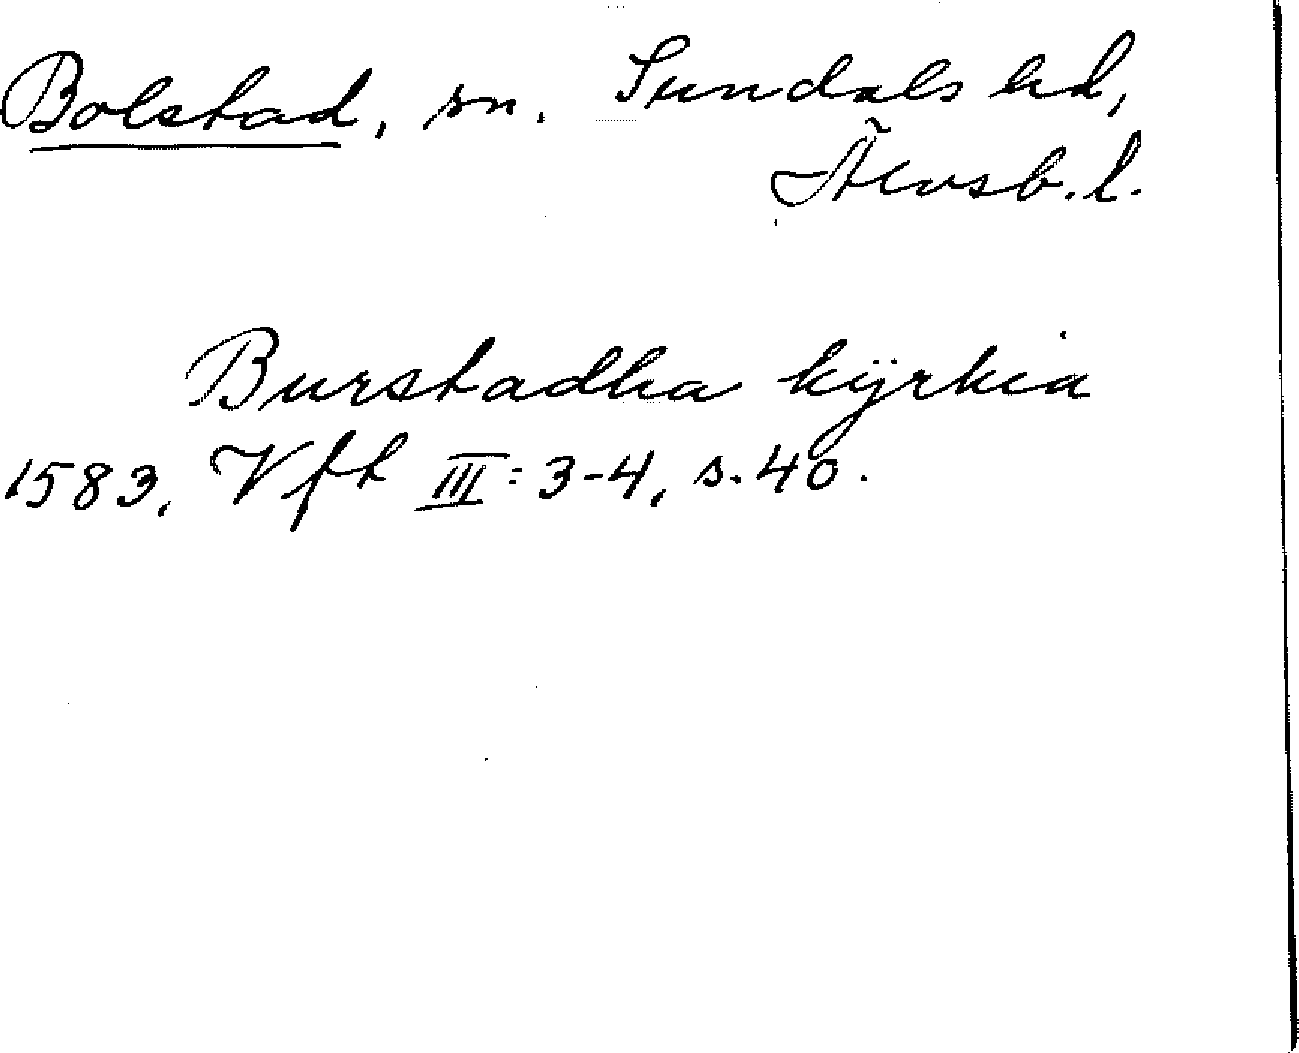 Bolstad, sn. Sundals hd,
Älvsb. l.
Burstadha kÿrkia
1583. Vft III: 3-4, s. 40.